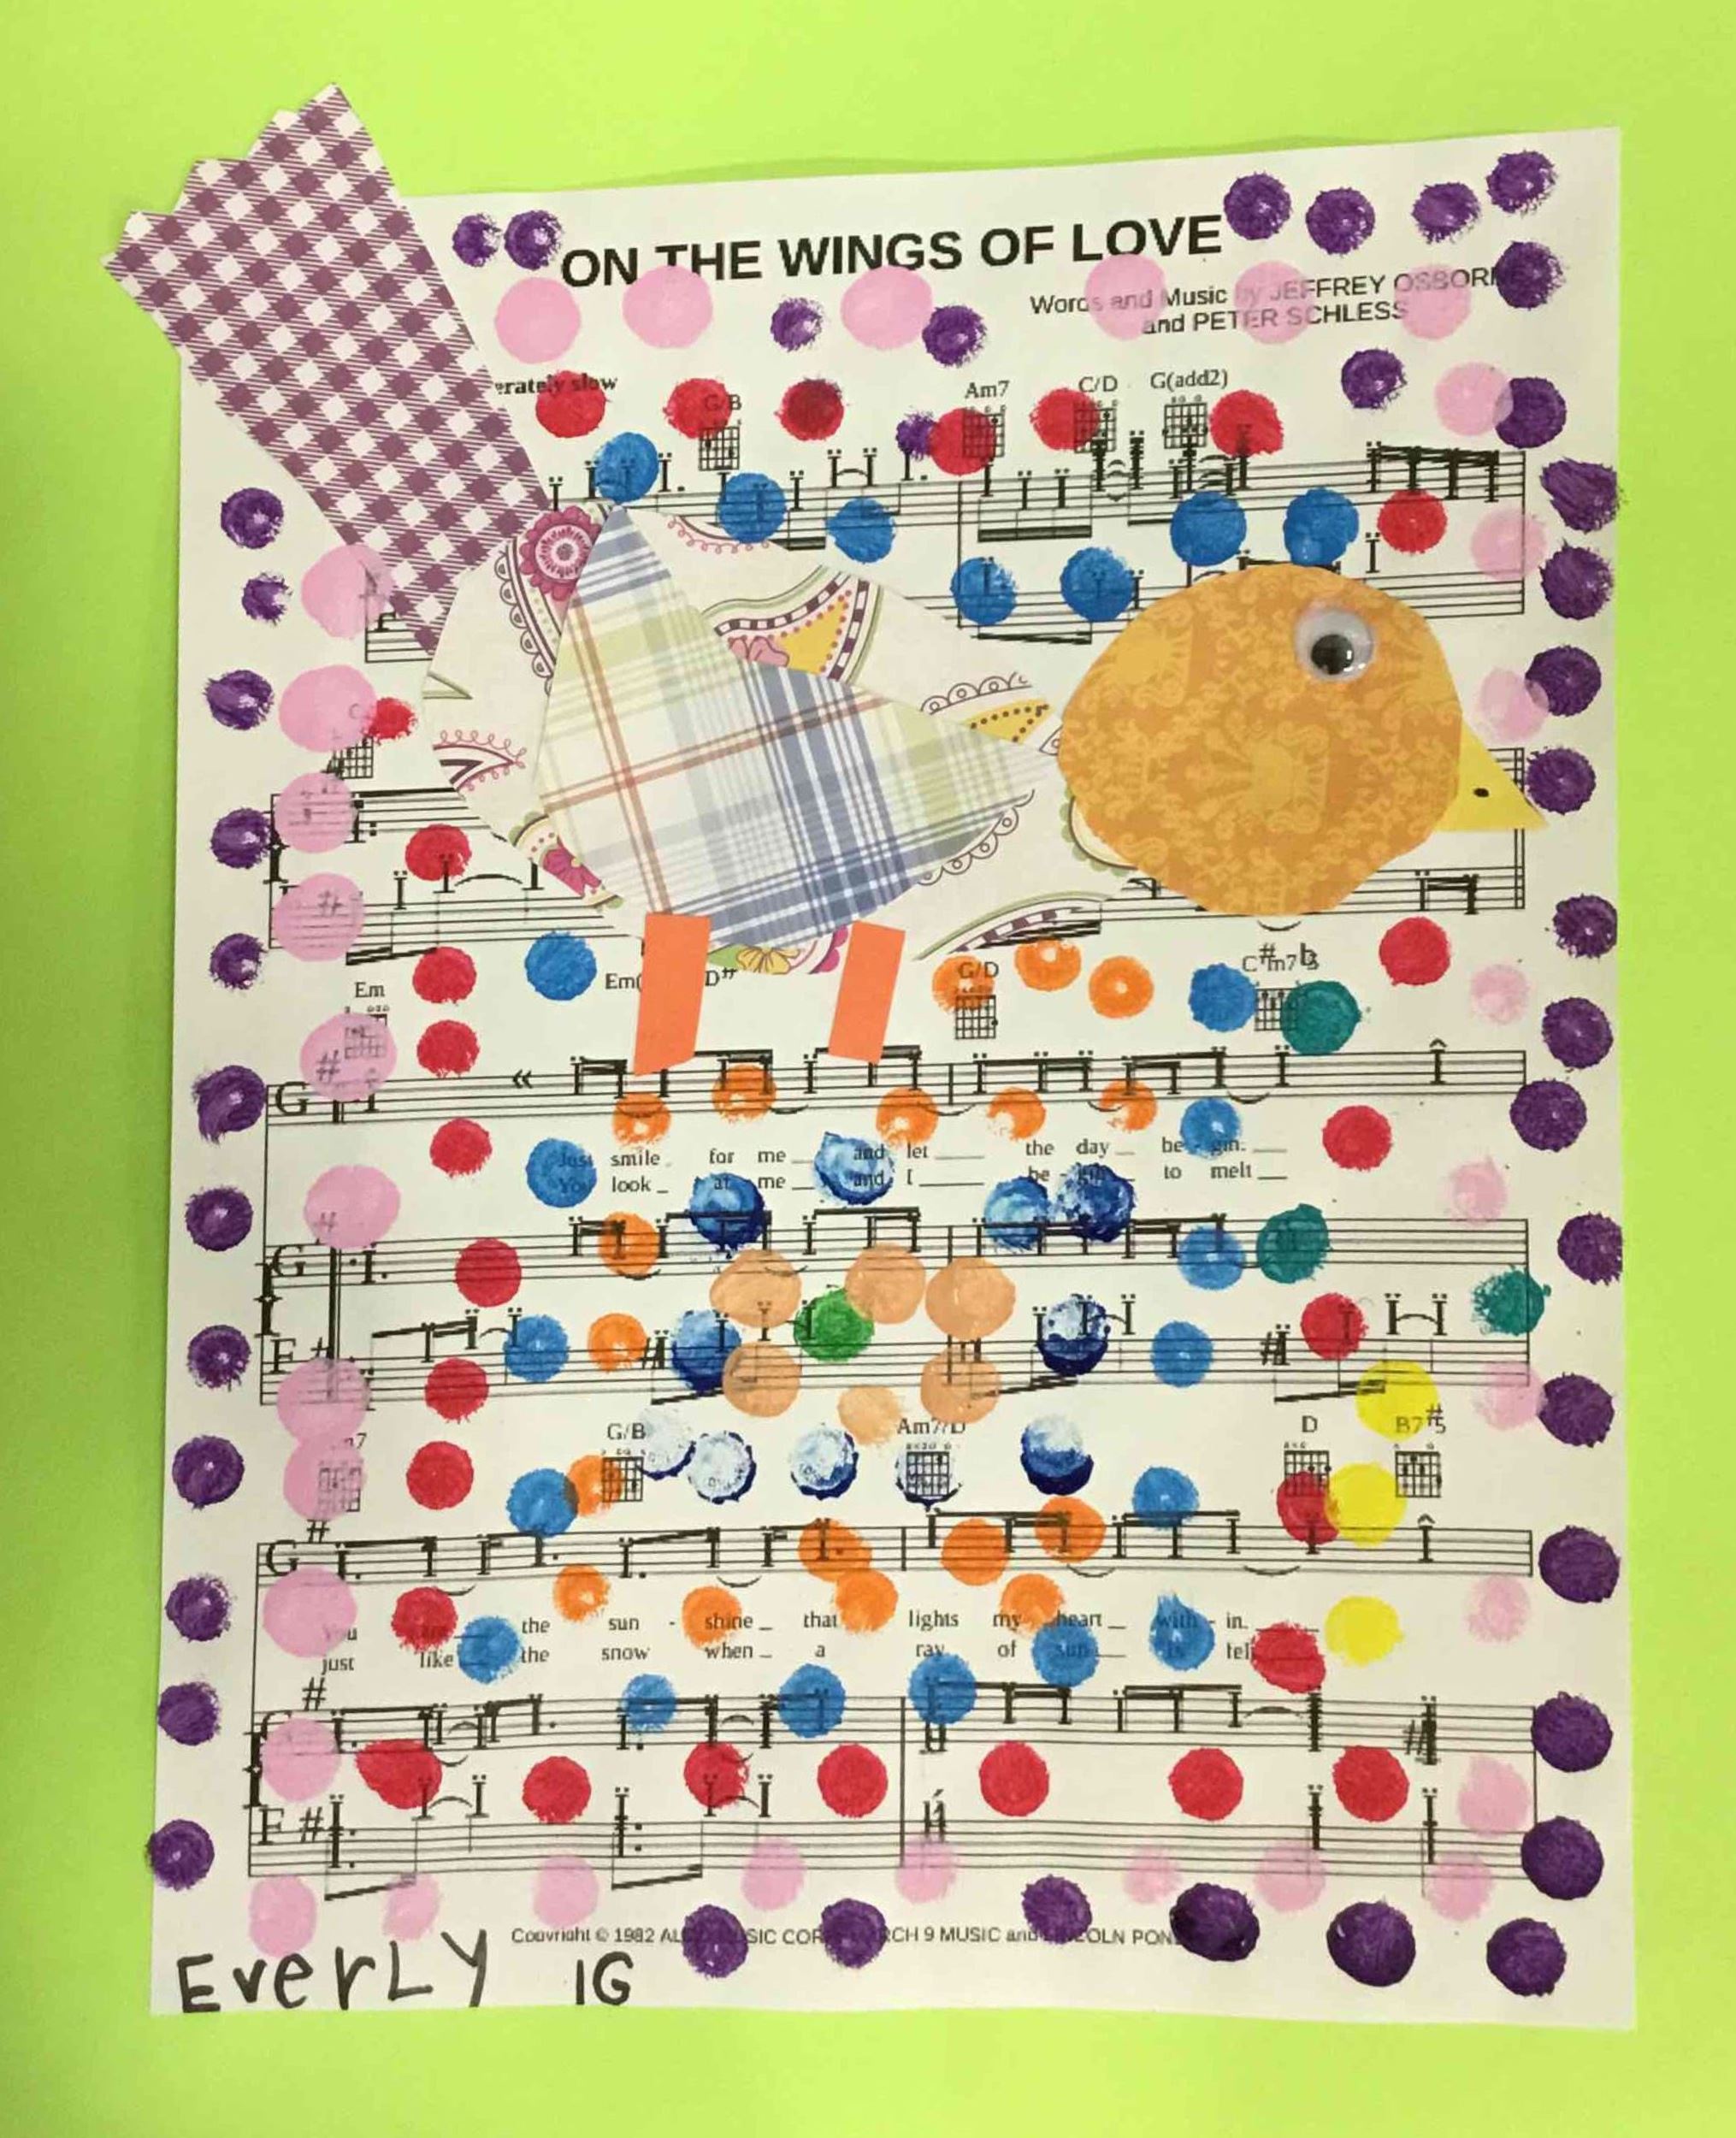 ON THE WINGS OF LOVE
Words and Music by JEFFREY OSBORNE
and PETER SCHLESS
erately slow
G/B Am7 C/D G(add2)
Em Em( D" G/D C#m7b5
G
Just smile for me and let the day be - gin.
You look at me and I be - gin to melt
G
F #
G/B Am7/D D B7#5
G #
You are the sun - shine that lights my heart with - in.
just like the snow when a ray of sun
#
F #
Copyright © 1982
EverLy 1G